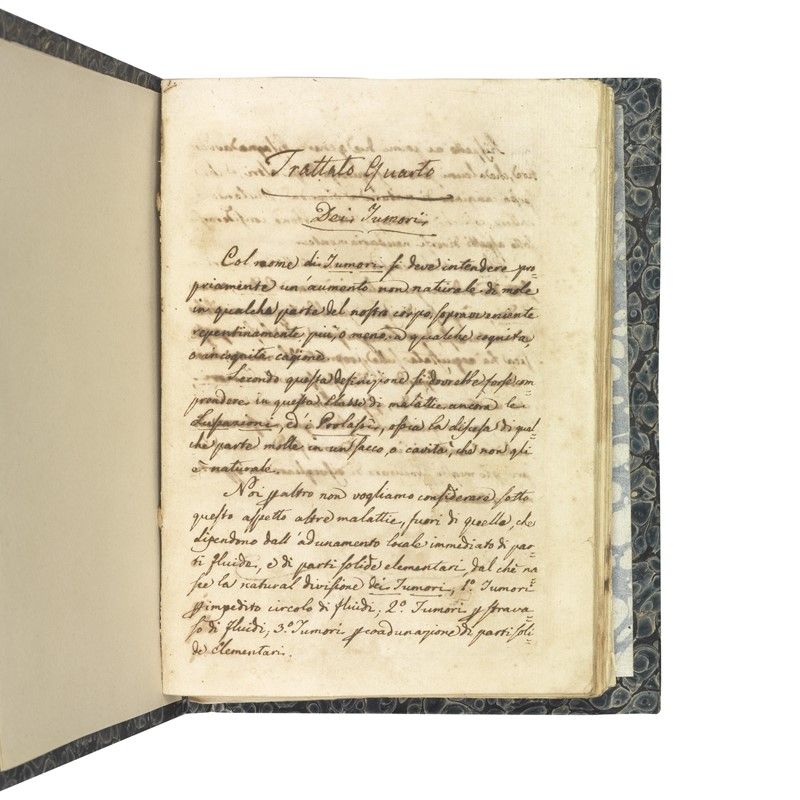 Trattato Quarto
Dei Tumori
Col nome di Tumori si deve intendere pro=
priamente un'aumento non naturale di mole
in qualche parte del nostro corpo, sopravveniente
repentinamente più, o meno, a qualche cognita
o incognita cagione.
Secondo questa definizione si dovrebbe forse com
prendere in questa Classe di malattie ancora le
Lussazioni, ed i Prolassi, ossia la discesa di qual=
che parte molle in un sacco, o cavità, che non gli
è naturale.
Noi p altro non vogliamo considerare sotto
questo aspetto altre malattie, fuori di quelle, che
dipendono dall'adunamento locale immediato di par=
ti fluide, e di parti solide elementari, dal che na=
sce la natural divisione dei Tumori, 1.o Tumori
p impedito circolo di fluidi; 2.o Tumori p strava=
so di fluidi, 3.o Tumori p coadunazione di parti soli=
de elementari.